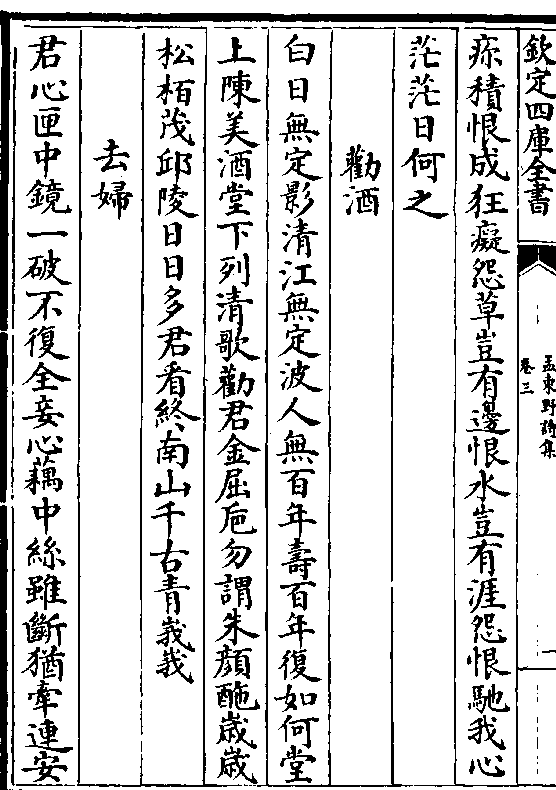 欽定四庫全書
孟東野詩集
卷三
一
痳積恨成狂癡怨草豈有邊恨水豈有涯怨恨馳我心
茫茫日何之
勸酒
白日無定影清江無定波人無百年壽百年復如何堂
上陳美酒堂下列清歌勸君金屈卮勿謂朱顔酡歳歳
松栢茂邱陵日日多君看終南山千古青峩峩
去婦
君心匣中鏡一破不復全妾心藕中絲雖斷猶牽連安